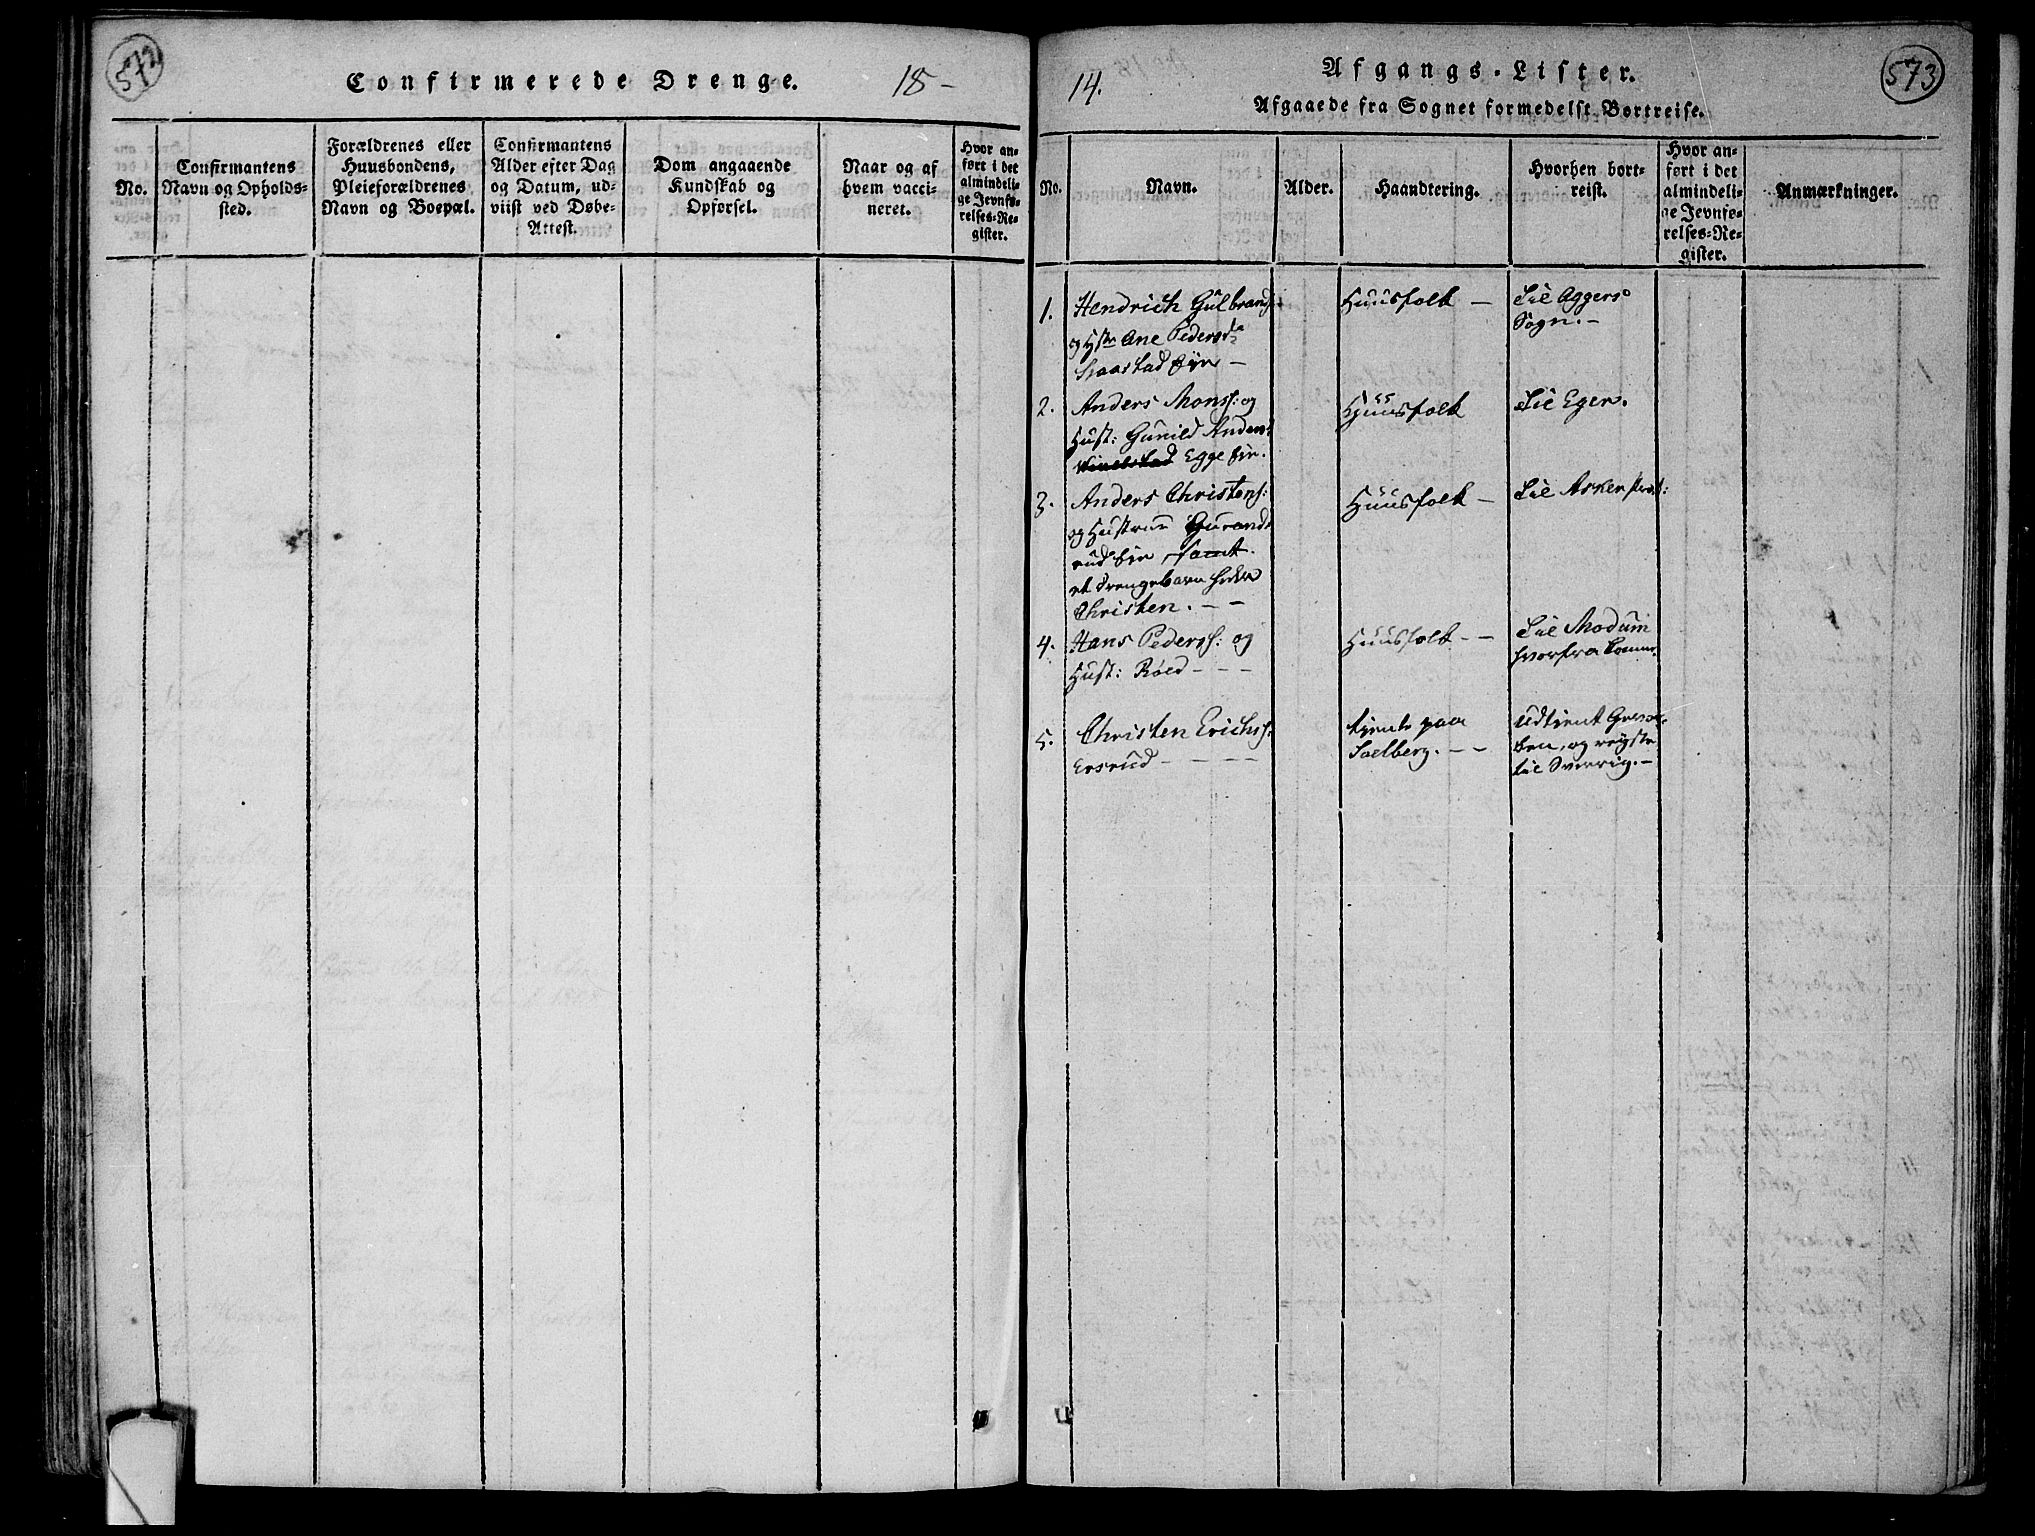 572
Confirmerede Drenge.
18-
No.
Confirmantens
Navn og Opholds-
sted.
Forældrenes eller
Huusbondens,
Pleieforældrenes
Navn og Boepæl.
Confirmantens
Alder efter Dag
og Datum, ud-
viist ved Døbe-
Attest.
Dom angaaende
Kundskab og
Opførsel.
Naar og af
hvem vacci-
neret.
Hvor an-
ført i det
almindeli-
ge Jevnfø-
relses-Re-
gister.
14.
Afgangs-Lister.
573
Afgaaede fra Sognet formedelst Bortreise.
No.
Navn.
Alder.
Haandtering.
Hvorhen bort-
reist.
Hvor an-
ført i det
almindeli-
ge Jevnfø-
relses-Re-
gister.
Anmærkninger.
1.
Hendrich Gulbrands:
og Hstr Ane Pedersdr
Staastad Eje -
Huusfolk -
Til Aggers
Sogn. -
2.
Anders Mons: og
Hust: Gunild Anders
Egge Eje.
Huusfolk
Til Eger.
3.
Anders Christens:
og Hustrue Gurand
rud Eje samt
et drengebarn
Christen. - -
Huusfolk -
Til Asker
4.
Hans Peders: og
Hust: Röed - - -
Huusfolk - -
Til Modum
hvorfra komne.
5.
Christen Erichs:
Ersrud - - - -
tjente paa
Solberg. - -
Udtjent
og reyste
til Sverrig. -